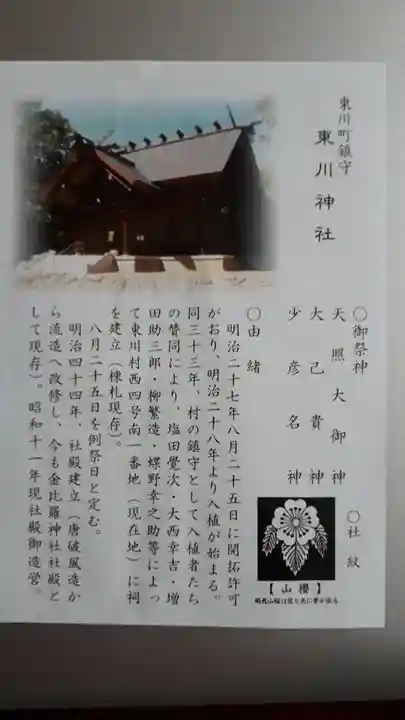 東川町鎮守
東川神社
〇御祭神
天照大御神
大己貴神
少彦名神
〇社紋
【山櫻】
〇由緒
明治二十七年八月二十五日に開拓許可
がおり、明治二十八年より入植が始まる。
同三十三年、村の鎮守として入植者たち
の賛同により、塩田覺次・大西幸吉・増
田助三郎・柳繁造・蝶野幸之助等によっ
て東川村西四号南一番地（現在地）に祠
を建立（棟札現存）。
八月二十五日を例祭日と定む。
明治四十四年、社殿建立（唐破風造か
ら流造へ改修し、今も金比羅神社社殿と
して現存）。昭和十一年現社殿御造営。